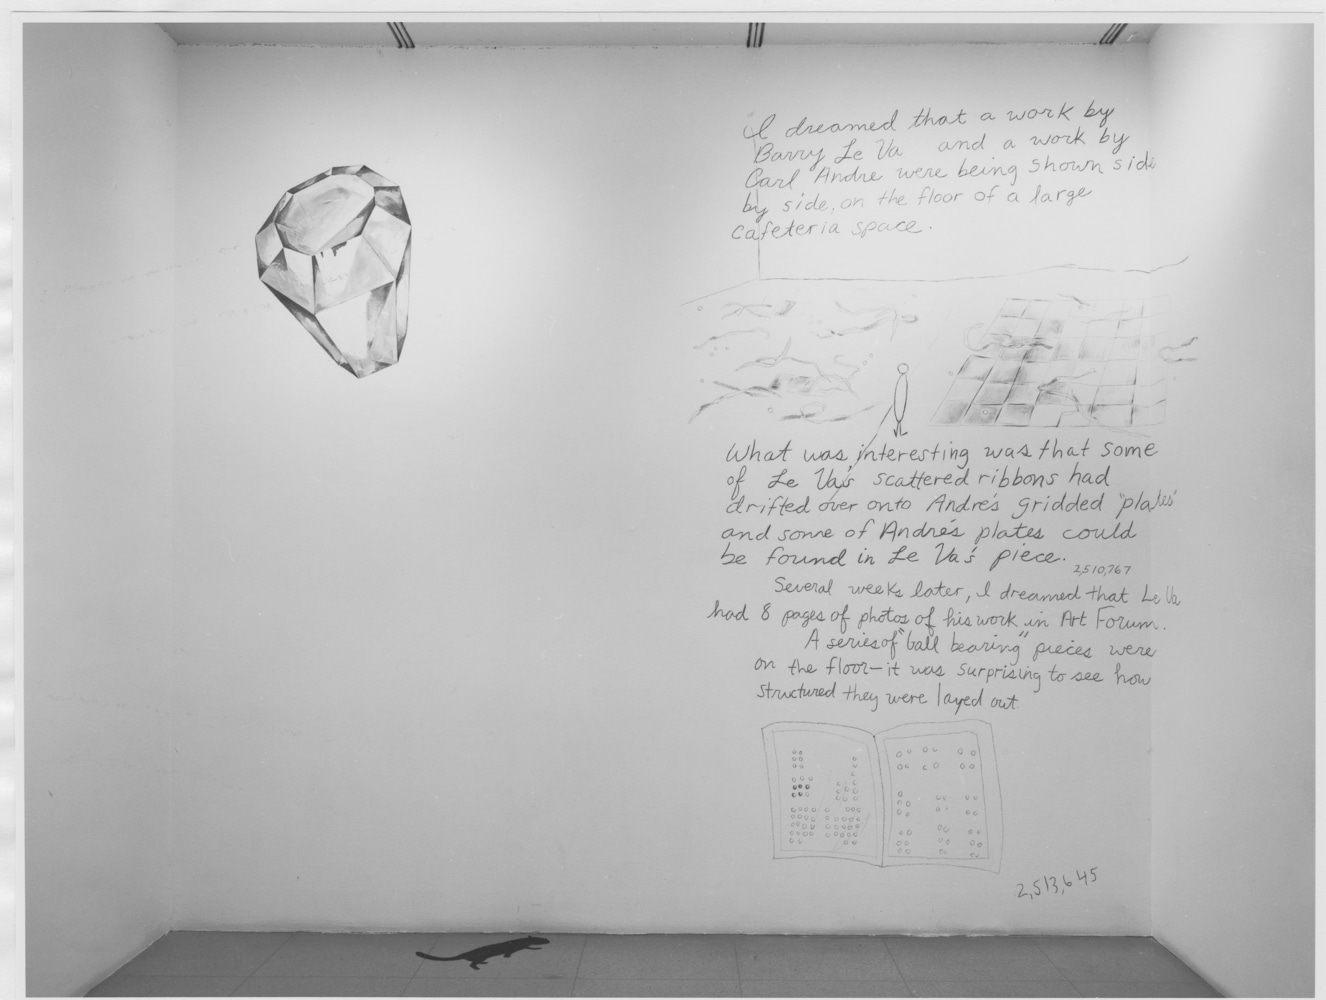 I dreamed that a work by
Barry Le Va and a work by
Carl Andre were being shown side
by side, on the floor of a large
cafeteria space.
What was interesting was that some
of Le Va's scattered ribbons had
drifted over onto Andre's gridded "plates"
and some of Andre's plates could
be found in Le Va's piece.
2,510,767
Several weeks later, I dreamed that Le Va
had 8 pages of photos of his work in Art Forum.
A series of "ball bearing" pieces were
on the floor—it was surprising to see how
structured they were layed out
2,513,645